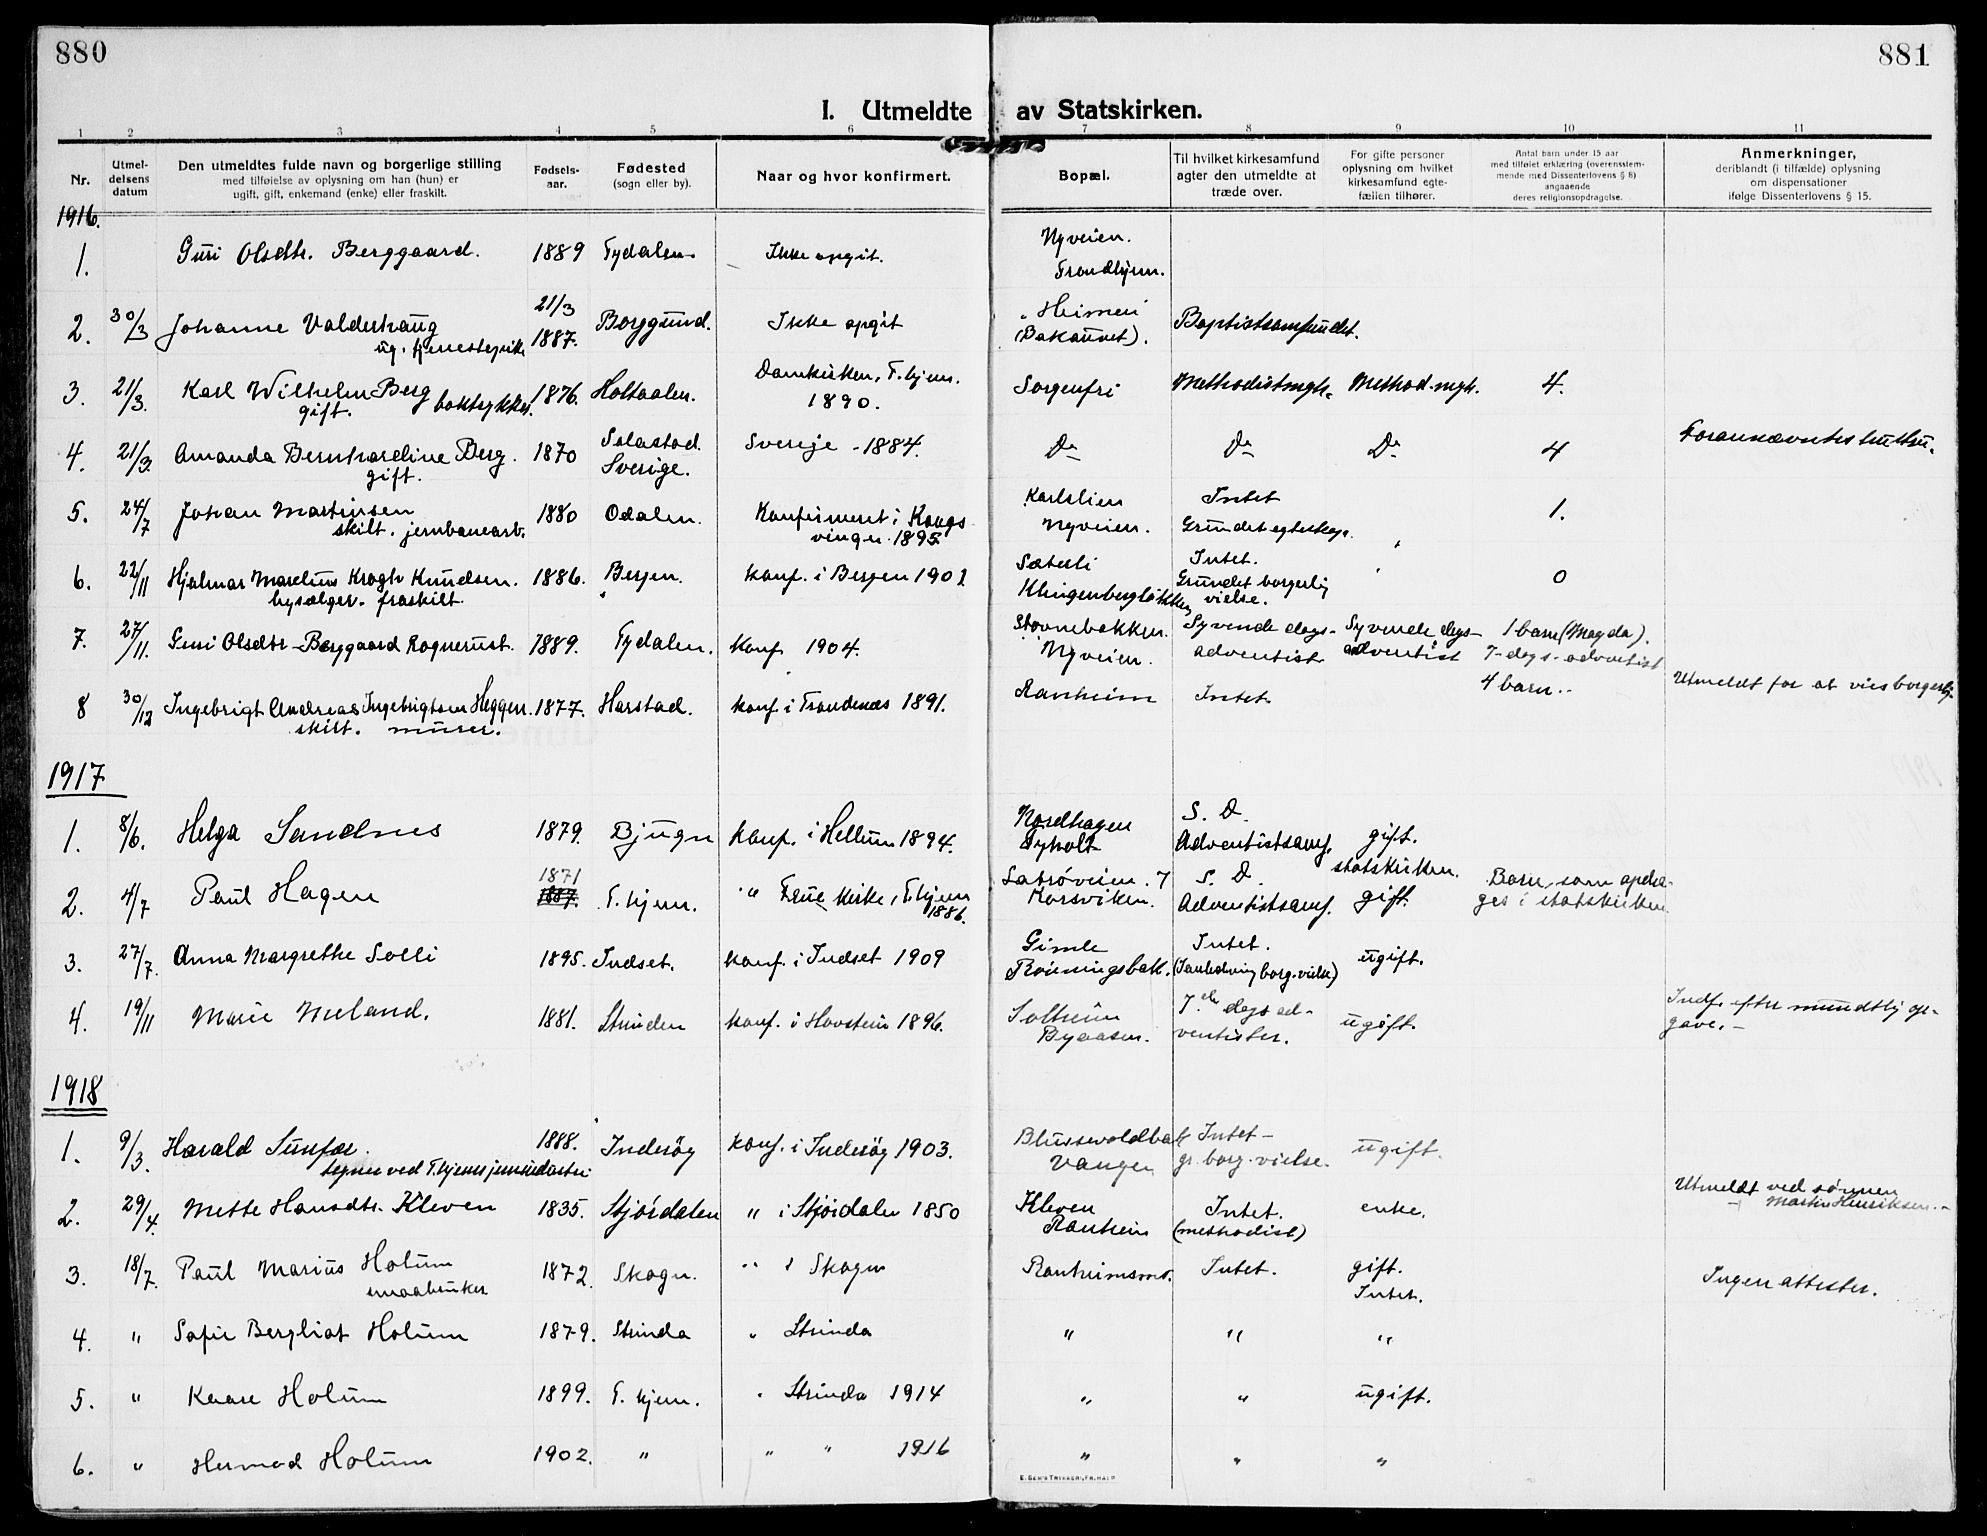 880
881
I. Utmeldte av Statskirken.
1 2 3 4 5 6 7 8 9 10 11
Nr.
Utmel-
delsens
datum
Den utmeldtes fulde navn og borgerlige stilling
med tilføielse av oplysning om han (hun) er
ugift, gift, enkemand (enke) eller fraskilt.
Fødsels-
aar.
Fødested
(sogn eller by).
Naar og hvor konfirmert.
Bopæl.
Til hvilket kirkesamfund
agter den utmeldte at
træde over.
For gifte personer
oplysning om hvilket
kirkesamfund egte-
fællen tilhører.
Antal barn under 15 aar
med tilføiet erklæring (overensstem-
mende med Dissenterlovens § 8)
angaaende
deres religionsopdragelse.
Anmerkninger,
deriblandt (i tilfælde) oplysning
om dispensationer
ifølge Dissenterlovens § 15.
1916.
1. Guri Olsdtr. Berggaard. 1889 Tydalen. Ikke opgit. Nyveien.
Trondhjem.
2. 30/3 Johanne Valderhaug 21/3 1887. Borggund. Ikke opgit "Heimen" (Bakaunet). Baptistsamfundet.
ug.
3. 21/3. Karl Wilhelm Berg 1876. Holtaalen. Domkirken, T.hjem. 1890. Sorgenfri Methodistmgh. Method. mgh. 4.
gift. boktrykker.
4. 21/3. Amanda Bernhardine Berg. 1870 Sverige. Sverige - 1884. Do Do Do 4
gift.
5. 24/7 Johan Martinsen 1880 Odalen. Konfirmert i Kongs
vinger 1895. Karlslien
Nyveien. Intet 1.
skilt. jernbanearb. Grundet egteskap.
6. 22/11 Hjalmar Marelius Krogh Knudsen. 1886. Bergen. konf. i Bergen 1901 Sæterli
Klingenbergløkken Intet.
Grundet borgerlig
vielse. 0
bysælger. fraskilt.
7. 27/11. Guri Olsdtr Berggaard Rognerust. 1889. Tydalen. Konf 1904. Stavnebakken.
Nyveien. Syvende dags-
adventist Syvende dags-
adventist 1 barn (Magda).
7-dags-adventist
8 30/12 Ingebrigt Andreas Ingebrigtsen Heggen. 1877. Harstad. konf. i Trondenes 1891. Ranheim Intet. 4 barn.. Utmeldt for at vies borgerlig
skilt. murer.
1917
1. 8/6. Helga Sandnes 1879. Bjugn konf. i Hellem 1894. Nordhagen
Tyholt S. D.
Adventistsamf. gift.
statskirken.
2. 4/7 Paul Hagen 1871 1887. T.hjem. " Frue kirke, T.hjem
1886. Ladeveien. 7
Korsviken. S. D.
Adventistsamf. gift. Barn, som opdra-
ges i statskirken.
3. 27/7. Anna Margrethe Solli 1895. Indset. konf. i Indset 1909 Gimle
Rønningsbak. Intet.
(I anledning borg. vielse) ugift.
4. 19/11 Marie Meland. 1881. Strinden konf. i Hovstein 1896. Solheim
Byaasen. 7de dags ad-
ventister. ugift. Indf. efter mundtlig op-
gave. -
1918
1. 9/3. Harald Sunfær. 1888. Inderøy konf. i Inderøy 1903. Blussevoldbak
Vangen Intet -
gr. borg. vielse. ugift.
tegner ved T.hjems
2. 29/4. Mette Hansdtr. Kleven 1835. Stjørdalen " i Stjørdalen 1850 Kleven
Ranheim Intet.
(methodist) enke. Utmeldt ved sønnen
Martin Henriksen. -
3. 18/7. Paul Marius Holum 1872. Skogn. " i Skogn Ranheimsmo. Intet. gift.
Intet. Ingen attester.
smaabruker
4. " Sofie Bergliot Holum 1879. Strinda " Strinda " " "
5. " Kaare Holum 1899. T.hjem. " Strinda 1914 " " ugift.
6. " Hermod Holum 1902. " " " 1916 " " "
E. SEM'S TRYKKERI, FR.HALD